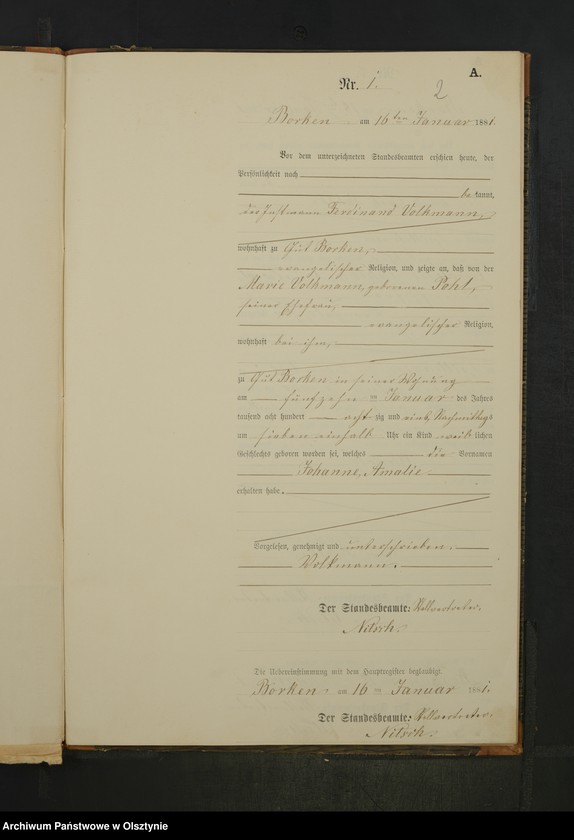 A.
Nr. 1.
2
Borken am 16ten Januar 1881.
Vor dem unterzeichneten Standesbeamten erschien heute, der
Persönlichkeit nach
be kannt,
der Instmann Ferdinand Volkmann,
wohnhaft zu Gut Borken,
evangelischer Religion, und zeigte an, daß von der
Marie Volkmann, geborenen Pohl,
seiner Ehefrau,
evangelischer Religion,
wohnhaft bei ihm,
zu Gut Borken in seiner Wohnung
am fünfzehn ten Januar des Jahres
tausend acht hundert acht zig und eins, Nachmittags
um sieben einhalb Uhr ein Kind weib lichen
Geschlechts geboren worden sei, welches die Vornamen
Johanne, Amalie
erhalten habe.
Vorgelesen, genehmigt und unterschrieben.
Volkmann.
Der Standesbeamte: Stellvertreter.
Nitsch.
Die Uebereinstimmung mit dem Hauptregister beglaubigt.
Borken, am 16 ten Januar 1881.
Der Standesbeamte: Stellvertreter.
Nitsch.
Archiwum Państwowe w Olsztynie